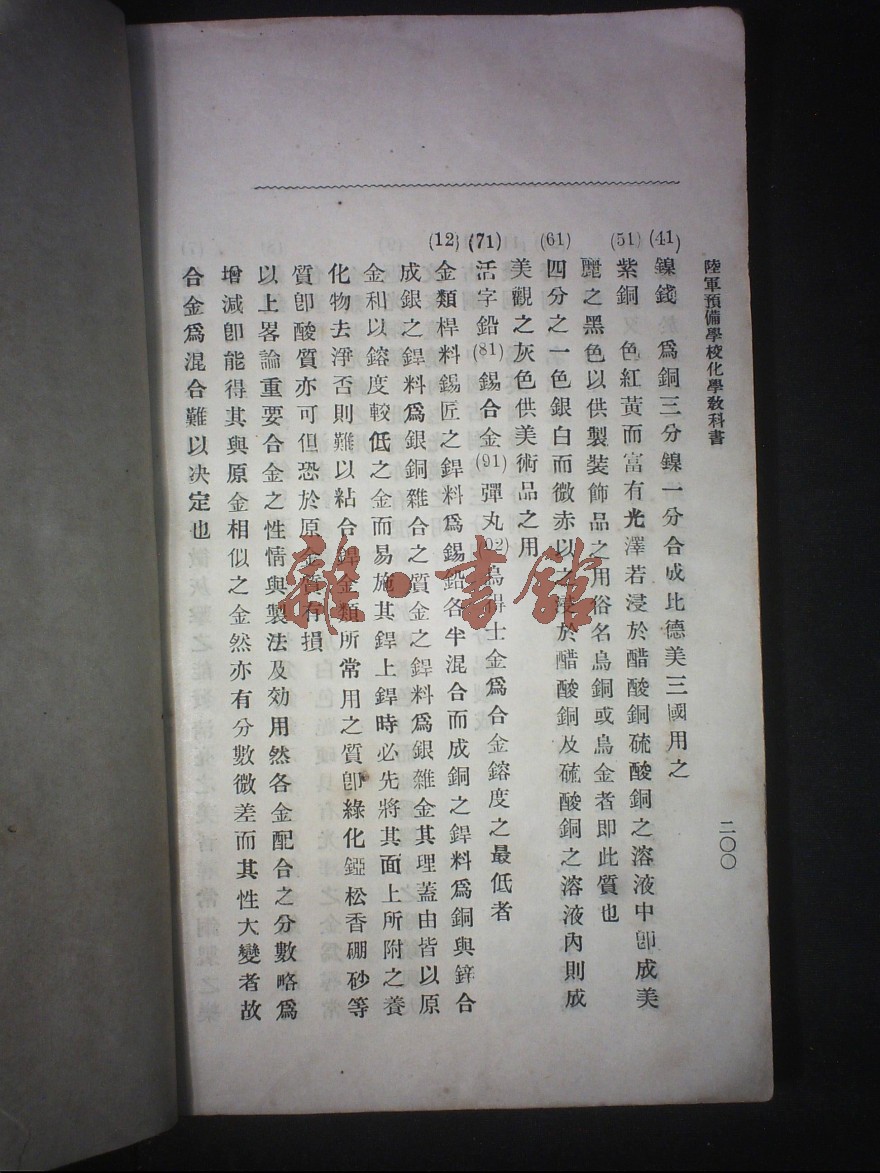 陸軍預備學校化學敎科書
二〇〇
(41)鎳錢 爲銅三分鎳一分合成比德美三國用之
(51)紫銅 色紅黃而富有光澤若浸於醋酸銅硫酸銅之溶液中卽成美
麗之黑色以供製裝飾品之用俗名烏銅或烏金者即此質也
(61)四分之一色銀白而微赤以之浸於醋酸銅及硫酸銅之溶液內則成
美觀之灰色供美術品之用
(71)活字鉛(81)錫合金(91)彈丸(02)烏得士金爲合金鎔度之最低者
(12)金類桿料錫匠之銲料爲錫鉛各半混合而成銅之銲料爲銅與鋅合
成銀之銲料爲銀銅雜合之質金之銲料爲銀雜金其理蓋由皆以原
金和以鎔度較低之金而易施其銲上銲時必先將其面上所附之養
化物去淨否則難以粘合銲金類所常用之質卽綠化錏松香硼砂等
質卽酸質亦可但恐於原金質有損
以上畧論重要合金之性情與製法及効用然各金配合之分數略爲
增減卽能得其與原金相似之金然亦有分數微差而其性大變者故
合金爲混合難以决定也
雜·書館